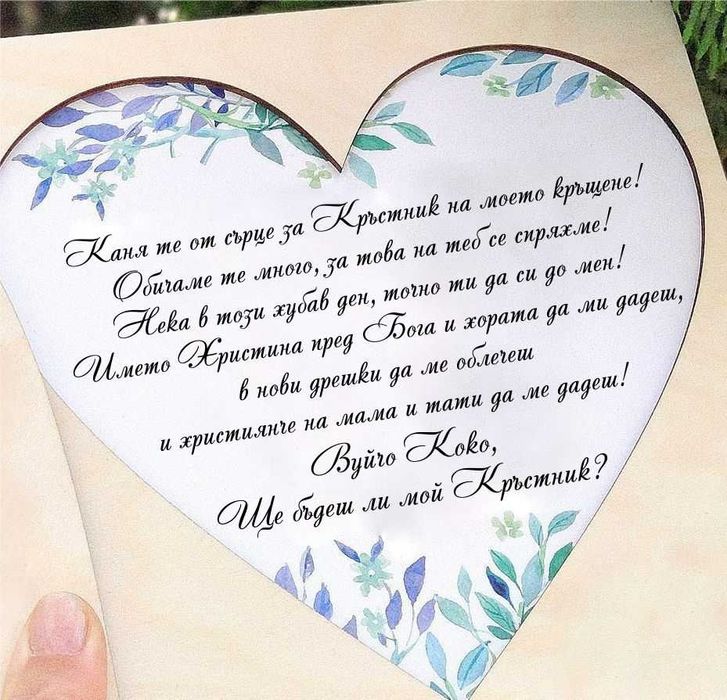 Каня те от сърце за Кръстник на моето кръщене!
Обичаме те много, за това на теб се спряхме!
Нека в този хубав ден, точно ти да си до мен!
Името Християна пред Бога и хората да ми дадеш,
в нови дрешки да ме облечеш
и християнче на мама и тати да ме дадеш!
Вуйчо Коко,
Ще бъдеш ли мой Кръстник?